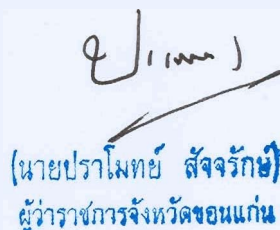 (นายปราโมทย์ สัจจรักษ์)
ผู้ว่าราชการจังหวัดขอนแก่น